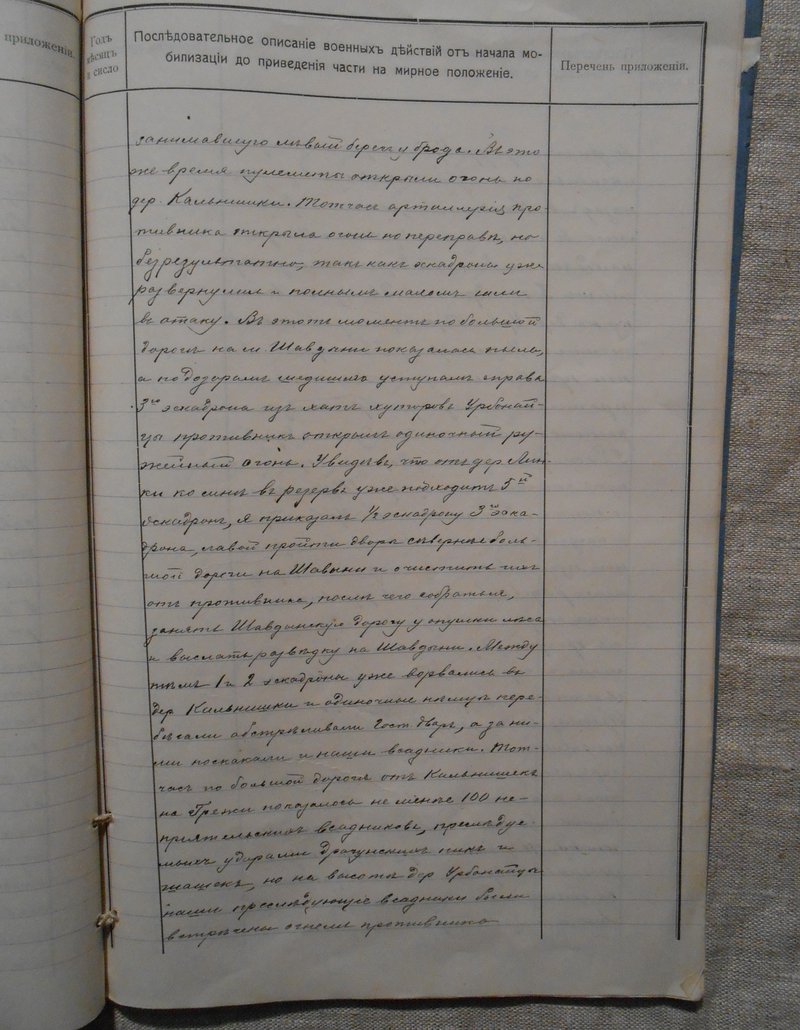 приложенія.
Годъ
мѣсяцъ
и число
Послѣдовательное описаніе военныхъ дѣйствій отъ начала мо-
билизаціи до приведенія части на мирное положеніе.
Перечень приложенія.
занимавшую лѣвый берегъ у брода. Въ это
же время пулеметы открыли огонь по
дер. Кальнишки. Тотчасъ артиллерія про-
тивника открыла огонь по переправѣ, но
безрезультатно, такъ какъ эскадроны уже
развернулись и полнымъ махомъ шли
въ атаку. Въ этотъ моментъ по большой
дорогѣ на м. Шавдыни показалась пыль,
а по дозорамъ шедшаго уступомъ справа
3го эскадрона изъ хатъ хуторовъ Урбонай-
цы противникъ открылъ одиночный ру-
жейный огонь. Увидѣвъ, что отъ дер. Лин-
ки ко мнѣ въ резервъ уже подходитъ 5й
эскадронъ, я приказалъ 1/2 эскадрону 3го эска-
дрона, лавой пройти дворы сѣвернѣе боль-
шой дороги на Шавдыни и очистить ихъ
отъ противника, послѣ чего собраться,
занять Шавдынскую дорогу у опушки лѣса
и выслать развѣдку на Шавдыни. Между
тѣмъ 1 и 2 эскадроны уже ворвались въ
дер Кальнишки и одиночные нѣмцы пере-
бѣгали обстрѣливали Гост. дворъ, а за ни-
ми поскакали и наши всадники. Тот-
часъ по большой дорогѣ отъ Кальнишекъ
на Грежи показалось не менѣе 100 не-
пріятельскихъ всадниковъ, преслѣдуе-
мыхъ ударами драгунскихъ пикъ и
шашекъ, но на высотѣ дер Урбонайцы
наши преслѣдующіе всадники были
встрѣчены огнемъ противника